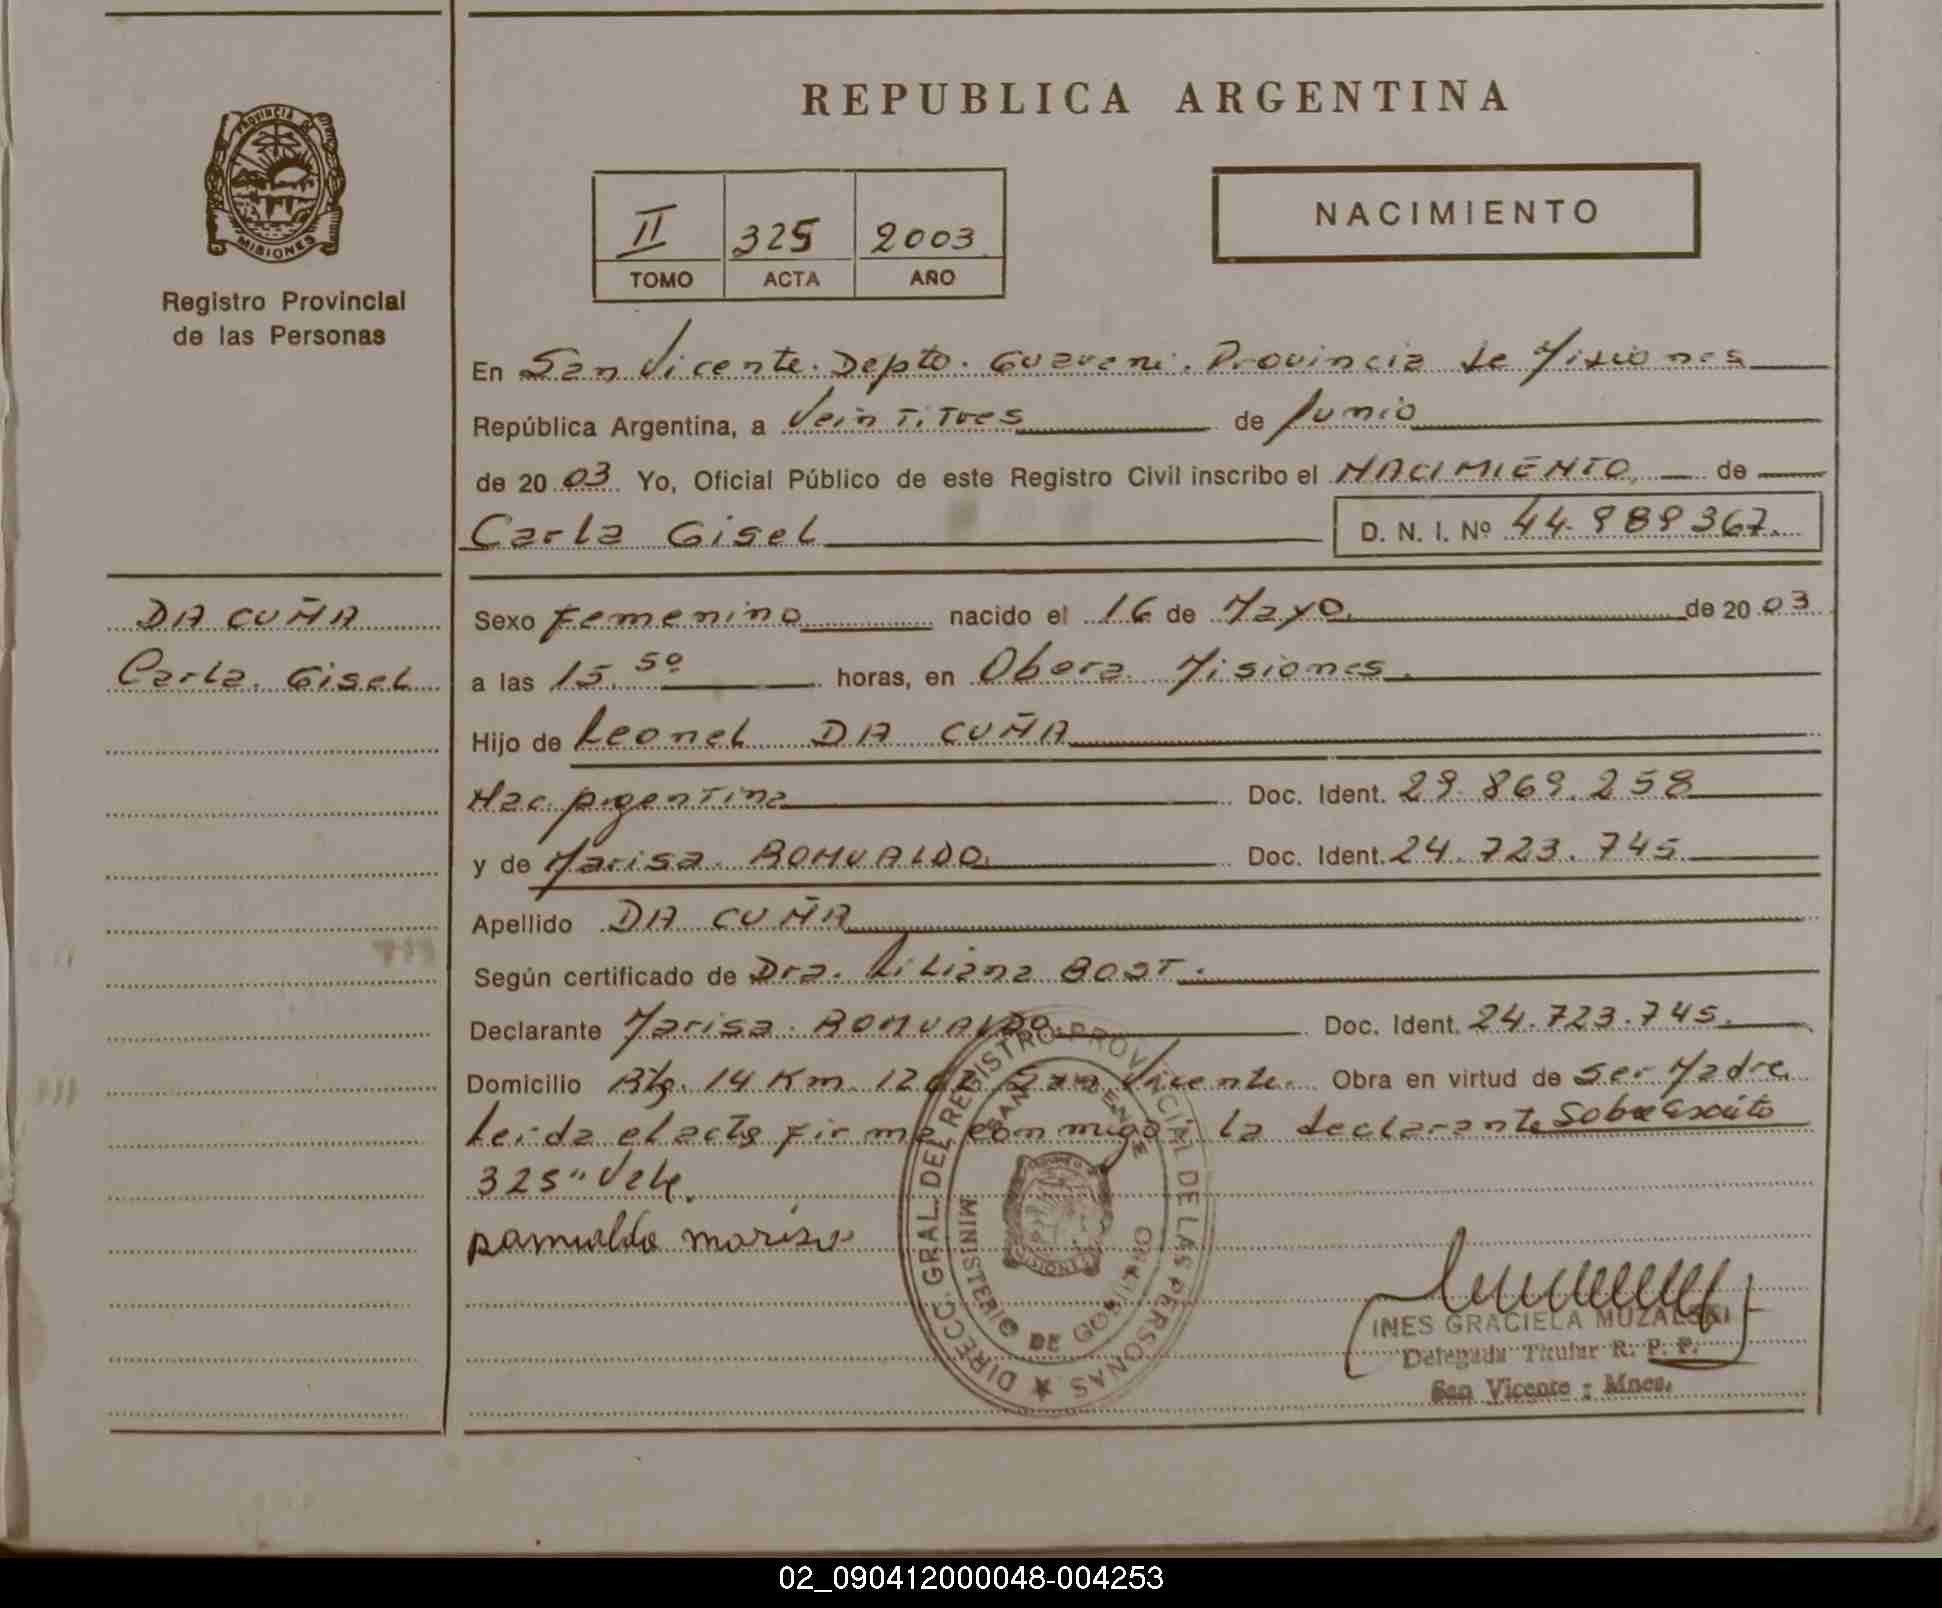 REPUBLICA ARGENTINA
PROVINCIA DE
MISIONES
Registro Provincial
de las Personas
II 325 2003
TOMO ACTA AÑO
NACIMIENTO
En San Vicente. Depto. Guarani. Provincia de Misiones
República Argentina, a Veintitres de Junio
de 2003 Yo, Oficial Público de este Registro Civil inscribo el NACIMIENTO de
Carla Gisel D. N. I. Nº 44.989367.
DA CUÑA
Carla. Gisel
Sexo Femenino nacido el 16 de Mayo de 2003
a las 15.50 horas, en Obera. Misiones.
Hijo de Leonel DA CUÑA
Nac. Argentina Doc. Ident. 29.869.258
y de Marisa. ROMUALDO. Doc. Ident. 24.723.745
Apellido DA CUÑA
Según certificado de Dra. Liliana
Declarante Marisa. ROMUALDO. Doc. Ident. 24.723.745.
Domicilio 14 Km. San Vicente. Obra en virtud de ser Madre.
Leida el acta firma conmigo la declarante sobre escrito
325" Vale.
Romualdo marisa
DIRECC. GRAL. DEL REGISTRO PROVINCIAL DE LAS PERSONAS
SAN VICENTE
MINISTERIO DE GOBIERNO
INES GRACIELA MUZALSKI
Delegada Titular R. P. P.
San Vicente - Mnes.
02_090412000048-004253